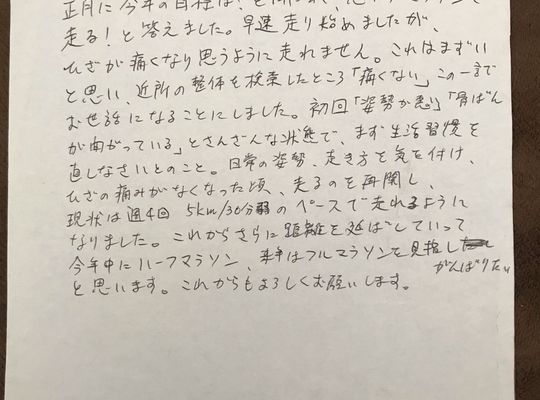 正月に今年の目標は?と聞かれ、
走る!と答えました。早速走り始めましたが、
ひざが痛くなり思うように走れません。これはまずい
と思い、近所の整体を検索したところ「痛くない」この一言で
お世話になることにしました。初回「姿勢が悪」「骨ばん
が曲がっている」とさんざんな状態で、まず生活習慣を
直しなさいとのこと。日常の姿勢、歩き方を気を付け、
ひざの痛みがなくなった頃、走るのを再開し、
現状は週4回 5km/30分弱のペースで走れるように
なりました。これからさらに距離を延ばしていって
今年中にハーフマラソン、来年はフルマラソンを目指し
がんばりたい
と思います。これからもよろしくお願いします。